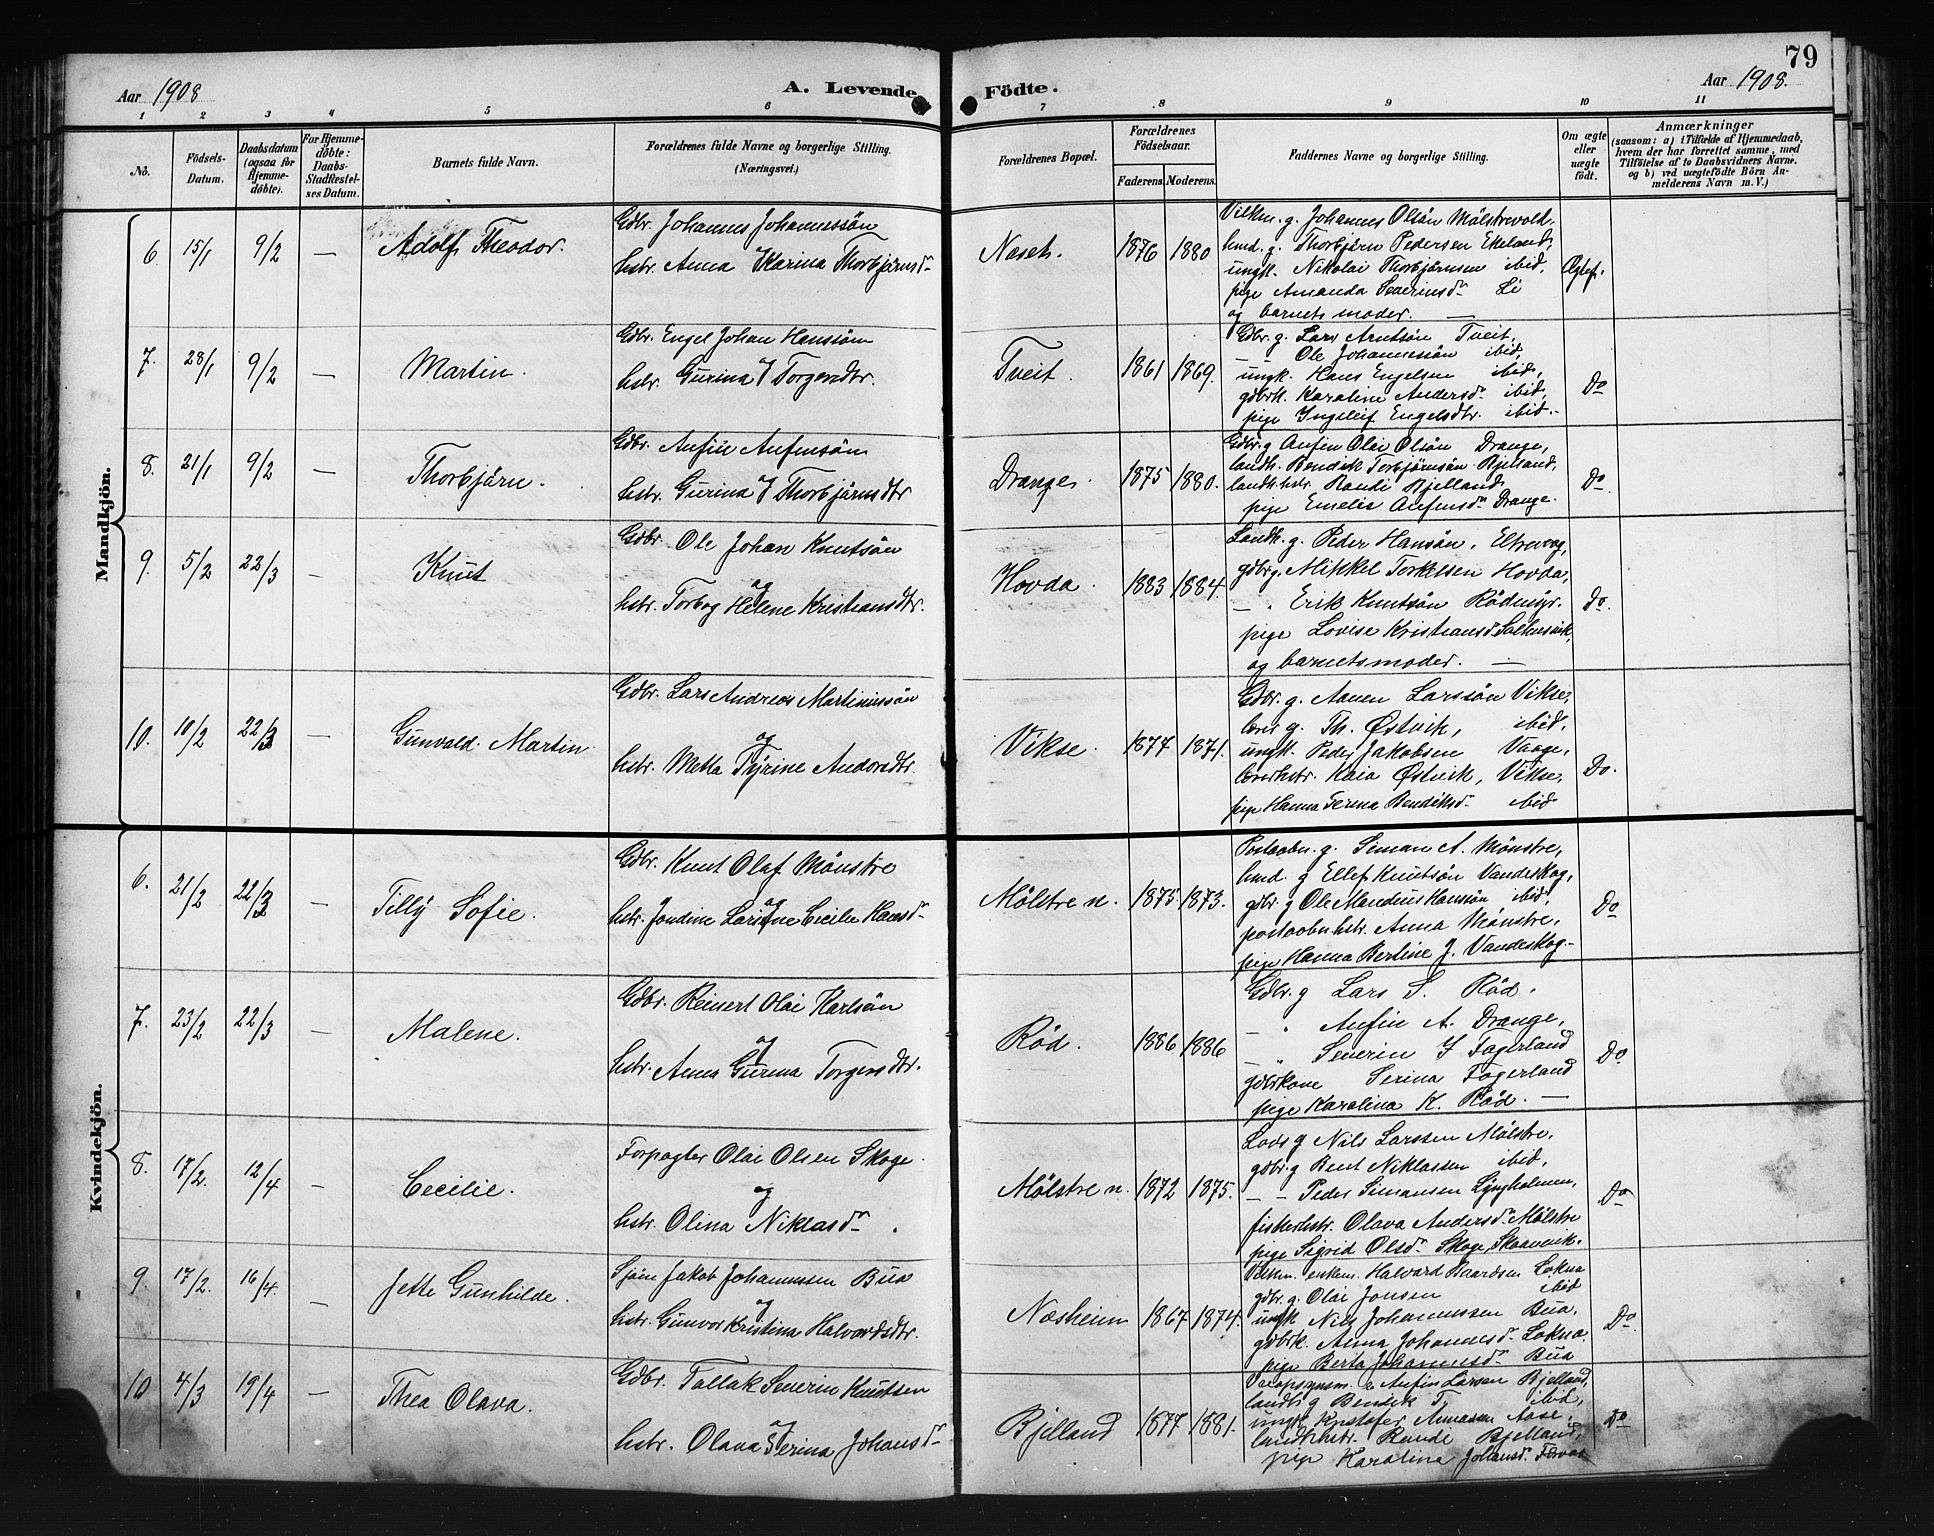 79
Aar 1908 A. Levende Födte. Aar 1908.
1 2 3 4 5 6 7 8 9 10 11
No. Födsels-Datum. Daabsdatum (ogsaa for Hjemme-döbte). For Hjemme-döbte: Daabs-Stadfæstel-ses Datum. Barnets fulde Navn. Forældrenes fulde Navne og borgerlige Stilling. (Næringsvei.) Forældrenes Bopæl. Forældrenes Födselsaar. Faderens. Moderens. Faddernes Navne og borgerlige Stilling. Om ægte eller uægte födt. Anmærkninger (saasom: a) i Tilfælde af Hjemmedaab, hvem der har forrettet samme, med Tilföielse af to Daabsvidners Navne. og b) ved uægtefödte Börn An-melderens Navn m. V.)
Mandkjön.
6 15/1 9/2 — Adolf Theodor.
Gdbr. Johannes Johannessön
og
hstr. Anna Karina Thorbjörnsd.
Naset. 1876 1880
Vilkm. g. Johannes Olsön Mölstrevold,
hmd. g. Thorbjörn Pedersen Ekeland,
ungk. Nikolai Thorbjörnsen ibid,
pige Amanda Severinsd. Li
og barnets moder. —
Ægtef.
7. 28/1 9/2 — Martin.
Gdbr. Engel Johan Hanssön
og
hstr. Gurina Torgersdtr.
Tveit. 1861 1869.
Gdbr. g. Lars Arntsön Tveit,
Ole Johannessön ibid,
ungk. Hans Engelsen ibid,
gdbrk. Karoline Andersd. ibid,
pige Ingeleif Engelsdtr. ibid.
Do
8. 21/1 9/2 — Thorbjörn.
Gdbr. Anfin Anfinsön
og
hstr. Gurina Thorbjörnsdtr
Drange. 1875 1880.
Gdbr. g Anfin Olai Olsön Drange,
landh. Bendik Torbjörnsön Bjelland,
landh.hstr. Randi Bjelland,
pige Emelie Anfinsd. Drange.
Do.
9. 5/2 22/3 — Knut
Gdbr. Ole Johan Knutsön
og
hstr. Torbog Helene Kristiansdtr.
Hovda. 1883 1884.
Landh. g. Peder Hansön, Eltrevaag,
gdbr g. Mikkel Torkelsen Hovda,
— " Erik Knutsön Rödmyr.
pige Lovise Kristiansd. Salhusvik,
og barnets moder. —
Do.
10. 10/2 22/3 — Gunvald Martin
Gdbr. Lars Andreas Martinussön
og
hstr. Metta Tyrine Andersdtr.
Vikse. 1877 1871.
Gdbr. g. Aanen Larssön Vikse,
g. Th. Østvik, ibid.
ungk. Peder Jakobsen Vaage,
Kaia Østvik, Vikse,
pige Hanna Serina Bendiksd. ibid
Do.
Kvindekjön.
6. 21/2 22/3 — Tilly Sofie.
Gdbr. Knut Olaf Mönstre
og
hstr. Jondine Larsine Cecilie Hansd.
Mölstre n. 1875 1873.
Postaabn. g. Simon A. Mönstre,
hmd. g Ellef Knutsön Vandeskog,
gdbr. g Ole Mandius Hanssön ibid,
postaabn hstr. Anna Mönstre,
pige Hanna Bertine J. Vandeskog.
Do
7. 23/2 22/3 — Malene.
Gdbr. Reinert Olai Karlsön
og
hstr. Anna Gurina Torgersdtr.
Rød. 1886 1886
Gdbr. g Lars S. Rød.
— " Anfin A. Drange,
— " Severin J Fagerland
gdbrkone Serina Fagerland
pige Karolina K. Rød. —
Do
8. 17/2. 12/4 — Cecilie.
Forpagter Olai Olsen Skoge
og
hstr. Olina Niklasd.
Mölstre n. 1872 1875.
Lods g Nils Larssen Mölstre.
gdbr. g Bent Niklassen ibid,
— — Peder Simonsen Lyngholmen,
fiskerhstr. Olava Andersd. Mölstre
pige Sigrid Olsd. Skoge,
Do
9. 17/2. 16/4. — Jette Gunhilde.
Sjöm Jakob Johannessen Bua
og
hstr. Gunvor Kristina Halvardsdtr.
Næsheim 1867 1874.
Vilkm. enkem. Halvard Baardsen Lokna
gdbr. g. Olai Jonsen ibid
ungk Nils Johannessen Bua.
gdbrk. Anna Johannesd. Lokna.
pige Berta Johannesd. Bua
Do.
10 4/3 19/4 — Thea Olava.
Gdbr. Tallak Severin Knutsen
og
hstr. Olava Serina Johansd.
Bjelland 1877 1881.
Anfin Larsen Bjelland,
landh. g Bendik T. ibid,
ungk Kristofer Aanassen Aase.
landh.hstr. Randi Bjelland,
pige Karolina Johansd.
Do